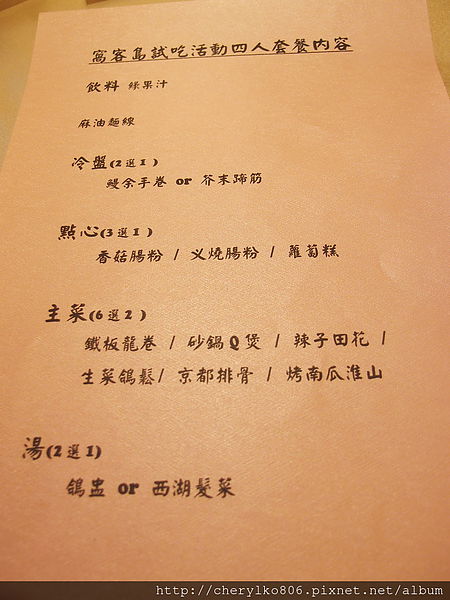 窩客島試吃活動四人套餐內容
飲料 綠果汁
麻油麵線
冷盤(2選1)
鰻魚手卷 or 芥末蹄筋
點心(3選1)
香菇腸粉 / 义燒腸粉 / 蘿蔔糕
主菜(6選2)
鐵板龍卷 / 砂鍋Q煲 / 辣子田花 /
生菜鴿鬆/ 京都排骨 / 烤南瓜淮山
湯(2選1)
鴿盅 or 西湖髮菜
http://cherylko806.pixnet.net/album